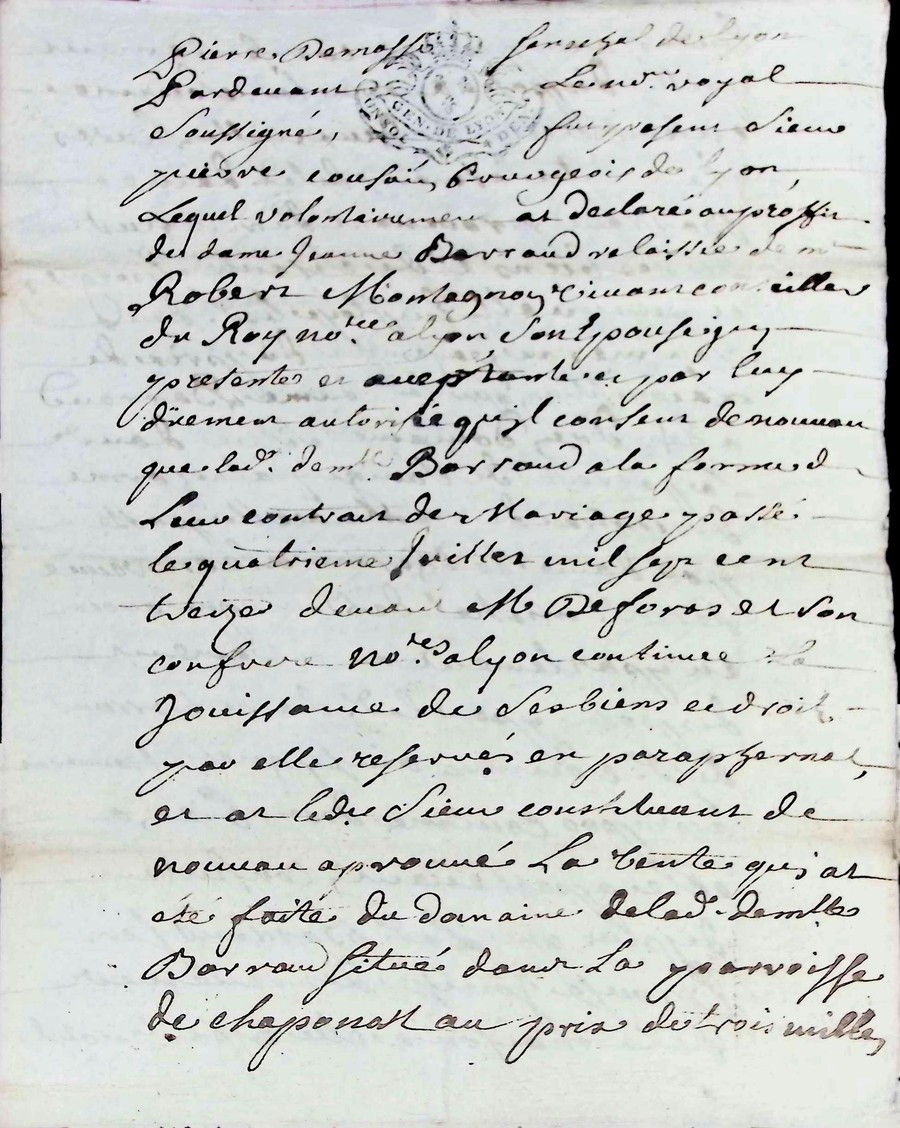 Pierre Demasse senechal de Lyon
Pardevant Le no.re royal
Soussigné, fut present Sieur
pierre cousin, Bourgeois de Lyon,
Lequel volontairement at declaré au proffit
de dame Jeanne Barraud relaissée de m.e
Robert Montagnon vivant conseiller
du Roy no.re a Lyon Son Epouse icy
presente et aceptante et par luy
düement autorisée qu'il consent de nouveau
que lad. dem.lle Barraud a la forme d
Leur contrait de Mariage passé
le quatrieme Juillet mil sept cent
treize devant M Deforas et Son
confrere no.res a lyon continue La
Jouissance de Ses biens et droit
par elle reservés en paraphernal,
et at ledit Sieur constituant de
nouveau aprouvé La vente qui at
été faite du domaine de lad. demlle
Barraud situé dans La parroisse
de chaponost au prix de trois mille
GEN. DE LYON